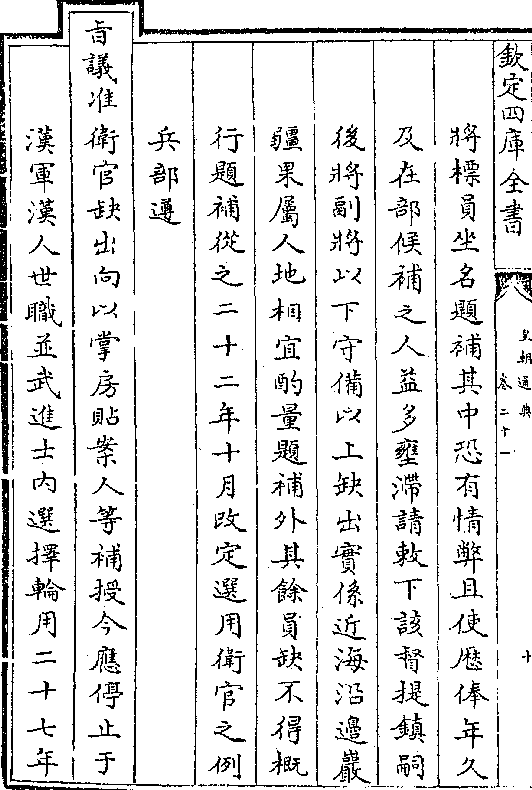 欽定四庫全書
皇朝通典
卷二十一
十
將標員坐名題補其中恐有情弊且使歴俸年久
及在部候補之人益多壅滯請敕下該督提鎮嗣
後將副將以下守備以上缺出實係近海沿邉巖
疆果屬人地相宜酌量題補外其餘員缺不得概
行題補從之二十二年十月改定選用衛官之例
兵部遵
旨議准衛官缺出向以掌房貼案人等補授今應停止于
漢軍漢人世職並武進士内選擇輪用二十七年